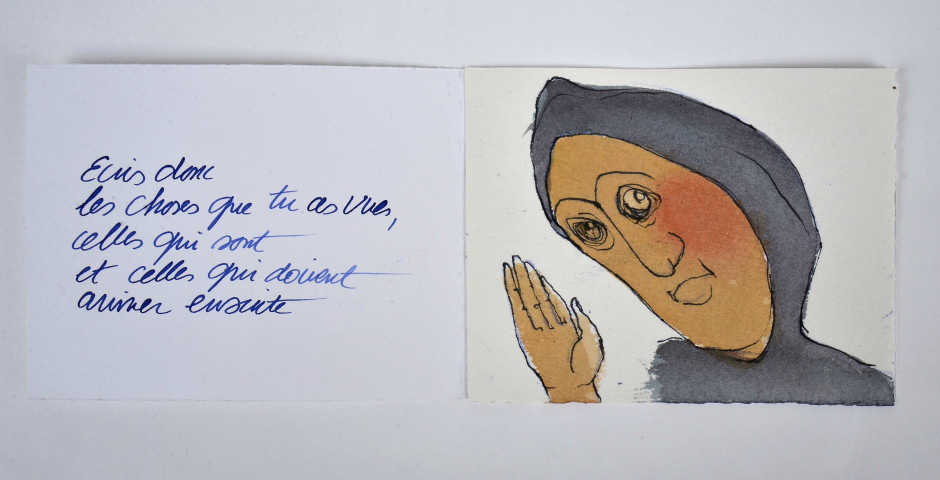 Ecris donc
les choses que tu as vues,
celles qui sont
et celles qui doivent
arriver ensuite